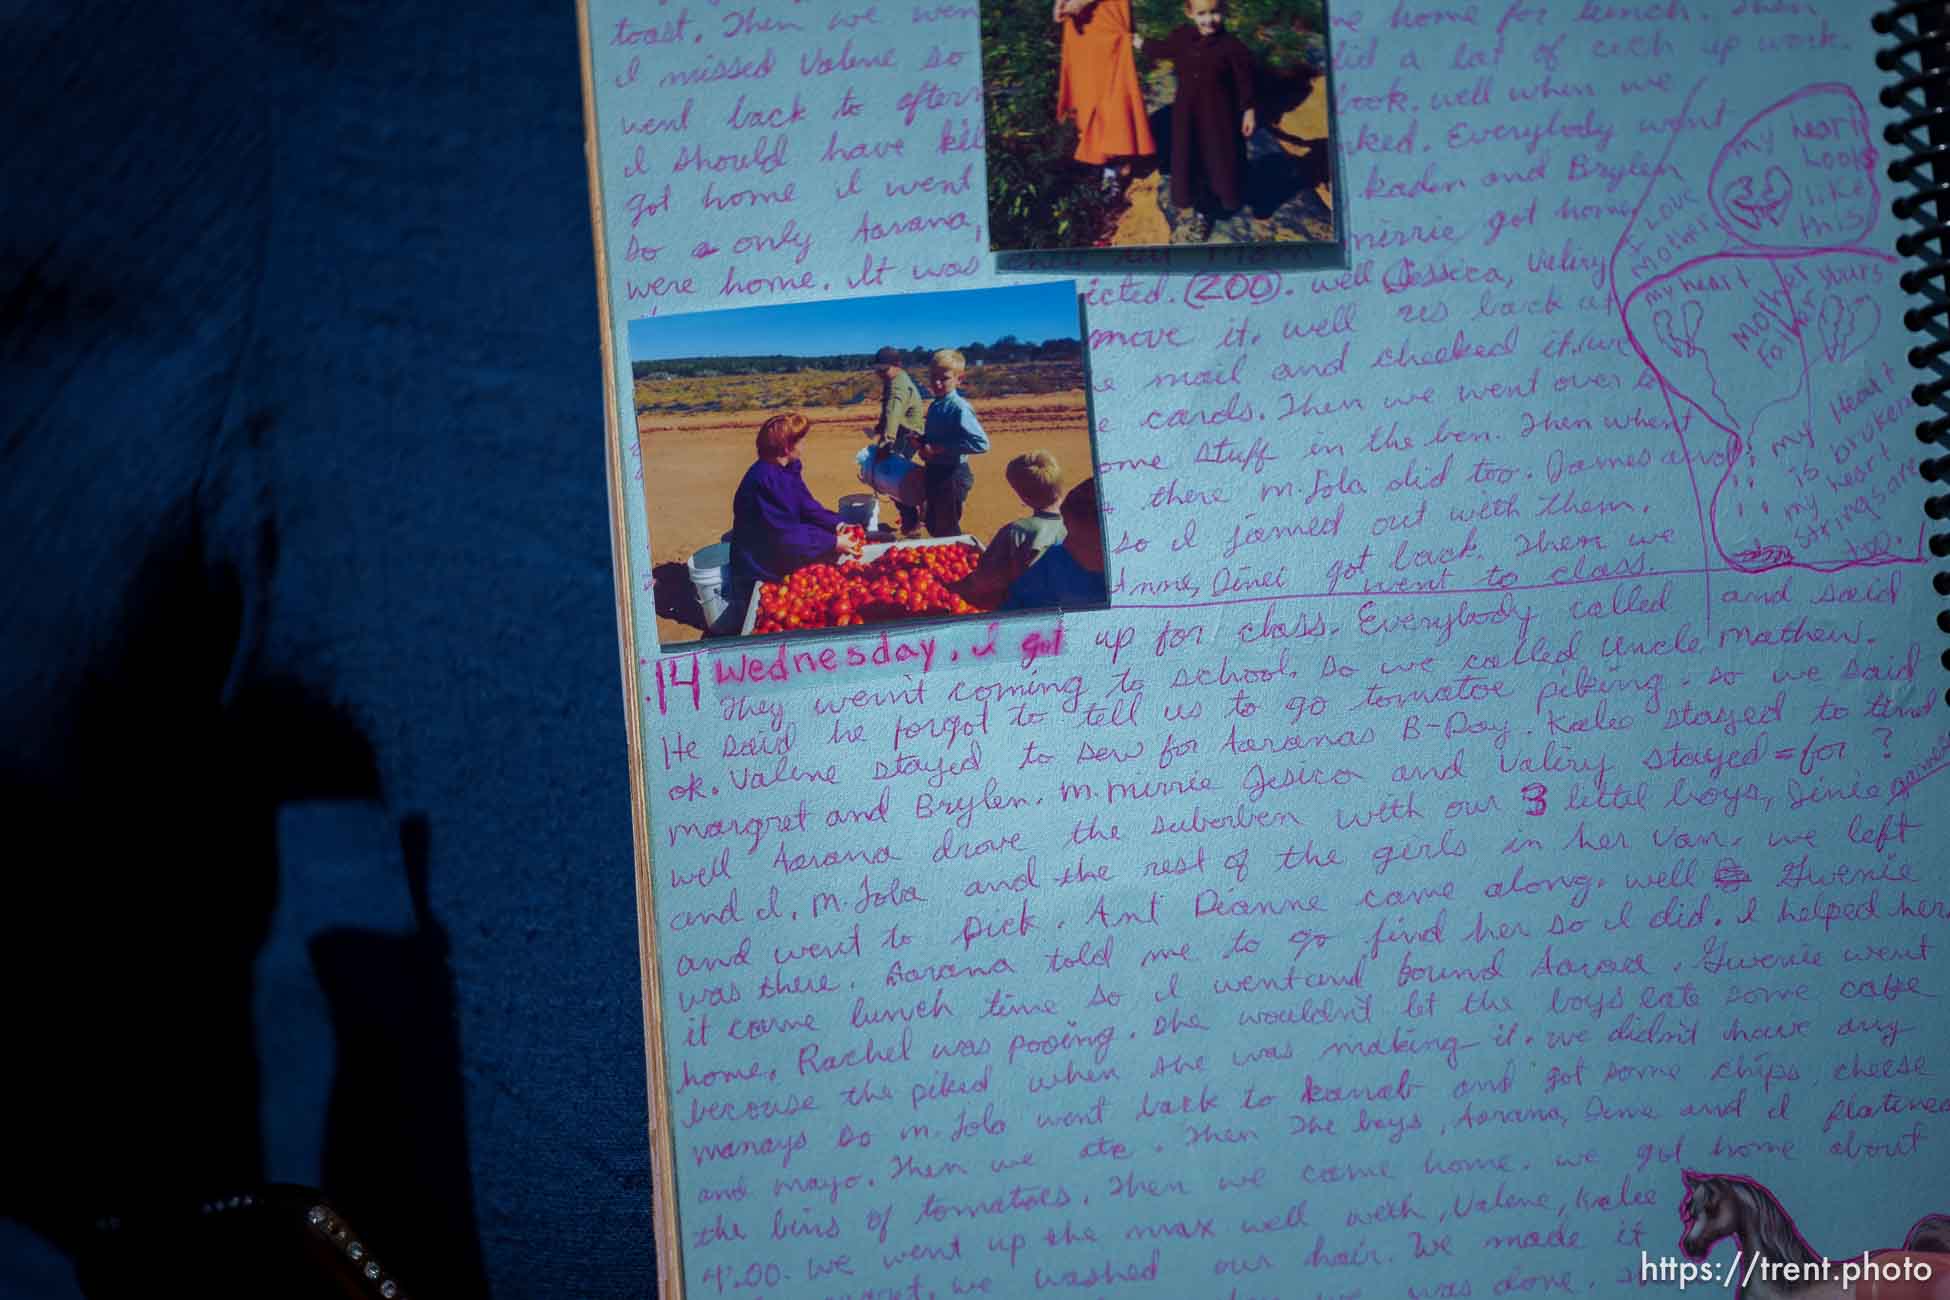 toast. Then we wen
me home for lunch. Then
I missed Valene so
did a lot of cech up work.
went back to aftern
book. well when we
I should have kil
nked. Everybody went
got home I went
Kaden and Brylen
so a only Aarana,
mirrie got home
were home. It was
icted. (200). well Jessica, Valiry
move it. well us back at
e mail and checked it. we
e cards. Then we went over to
ome stuff in the ben. Then whent
there M. Lola did too. James and
so I joined out with them.
Anne, Jinei got back. Then we
went to class.
my heart
Looks
like
this
I Love
Mother
my heart
Mother
Father
yours
my Heart
is broken
my heart
strings are
too.
14 Wednesday. I got up for class. Everybody called and said
They weren't coming to school. so we called Uncle Mathew.
He said he forgot to tell us to go tomatoe piking. so we said
ok. Valene stayed to sew for Aaranas B-Day. Kalee stayed to tend
margret and Brylen. M. Mirrie Jesica and Valiry stayed = for ?
well Aarana drove the suberben with our 3 littel boys, Jinie
and I. M. Lola and the rest of the girls in her van. we left
and went to Pick. Ant Dianne came along. well Gwenie
was there. Aarana told me to go find her so I did. I helped her
it came lunch time so I went and found Aaraa. Gwenie went
home. Rachel was pooing. She wouldn't let the boys eate some cake
becouse the piked when she was making it. we didn't have any
manays so M. Lola went back to Kanab and got some chips, cheese
and mayo. Then we ate. Then The boys, Aarana, Jenie and I flatened
the bins of tomatoes. Then we came home. we got home about
4:00. We went up the max well with, Valene, Kalee
we washed our hair. We made it
was done.
https://trent.photo